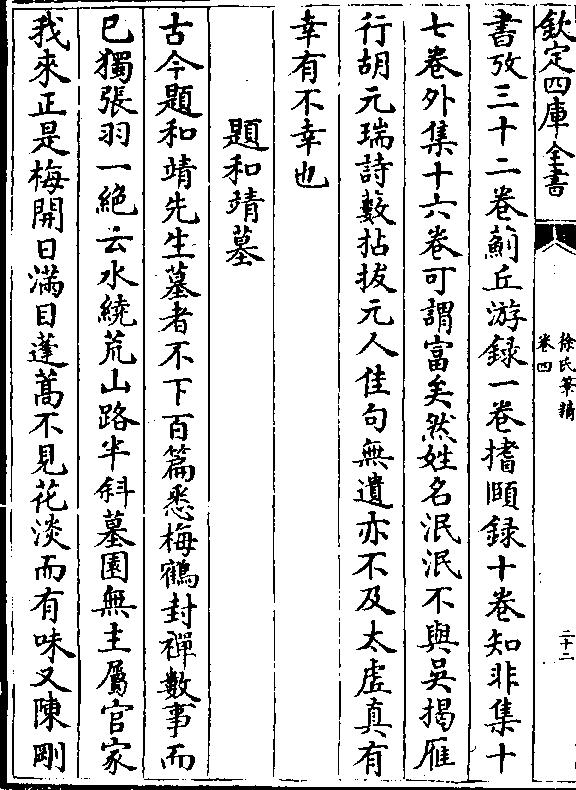 欽定四庫全書
徐氏筆精
卷四
二十二
書攷三十二卷薊丘游録一卷搘頤録十卷知非集十
七卷外集十六卷可謂富矣然姓名泯泯不與吳揭雁
行胡元瑞詩藪拈拔元人佳句無遺亦不及太虚真有
幸有不幸也
題和靖墓
古今題和靖先生墓者不下百篇悉梅鶴封禪數事而
已獨張羽一絶云水繞荒山路半斜墓園無主屬官家
我來正是梅開日滿目蓬蒿不見花淡而有味又陳剛